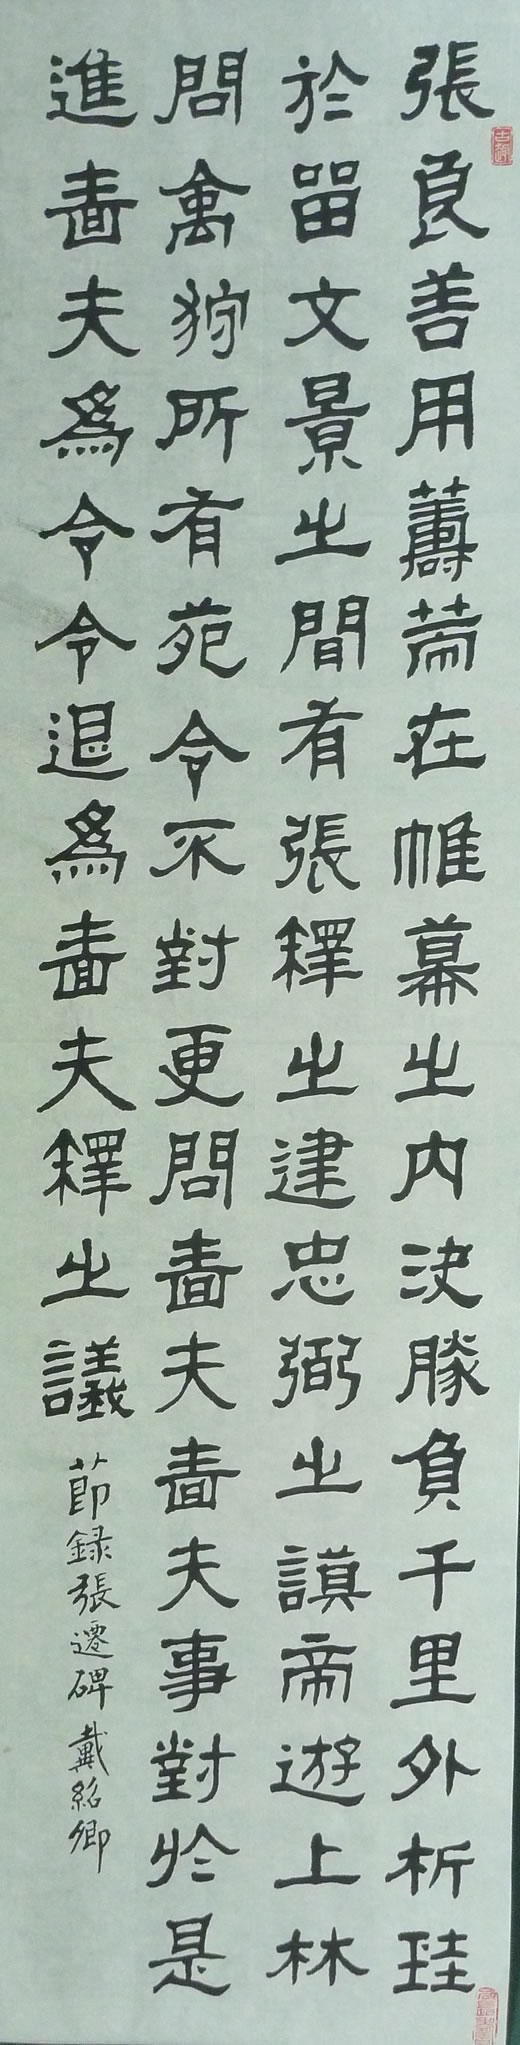 張良善用籌策在帷幕之内決勝負千里外析珪
於留文景之間有張釋之建忠弼之謨帝遊上林
問禽狩所有苑令不對更問嗇夫嗇夫事對於是
進嗇夫為令令退為嗇夫釋之議
節錄張遷碑 戴紹卿